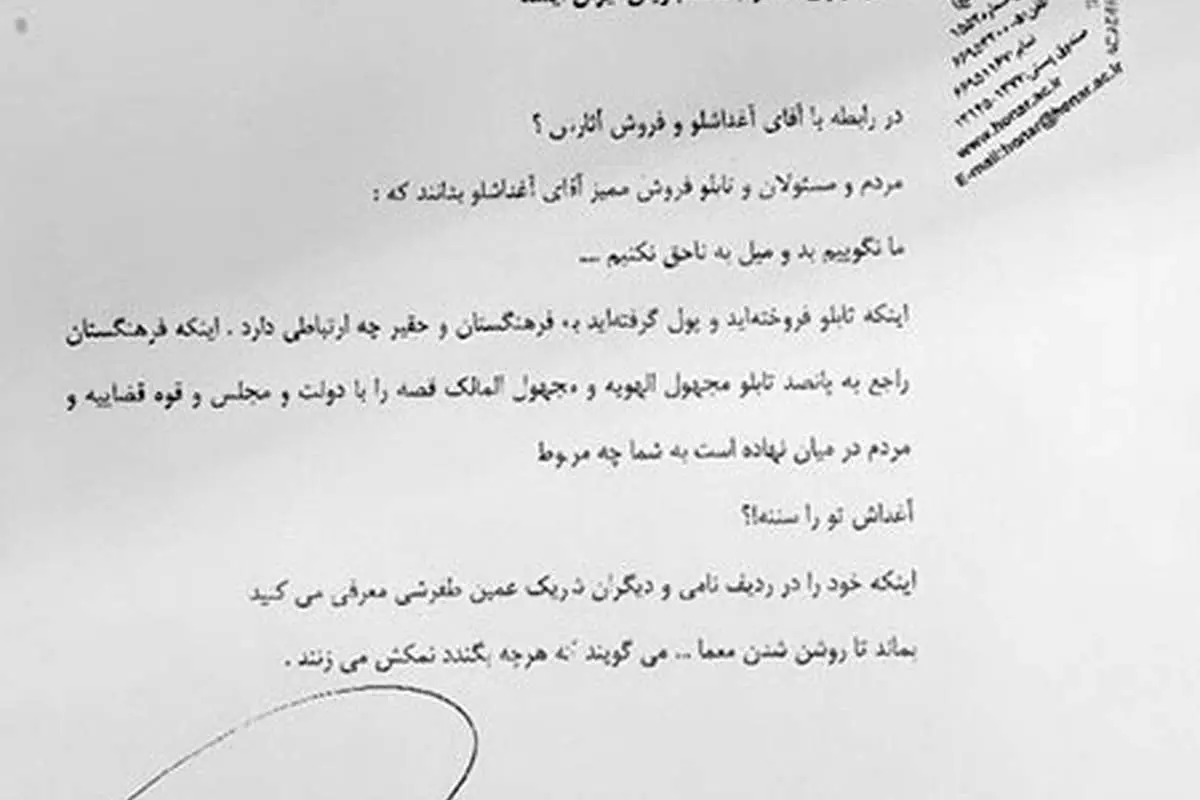 ایران ایسنا
۶۶۹۵۱۱۶۲
صندوق پستی: ۱۳۱۴۵-۱۳۷۷
www.honar.ac.ir
E-mail:honar@honar.ac.ir
در رابطه با آقای آغداشلو و فروش آثارش ؟
مردم و مسئولان و تابلو فروش ممیز آقای آغداشلو بدانند که :
ما نگوییم بد و میل به ناحق نکنیم ...
اینکه تابلو فروخته‌اید و پول گرفته‌اید به فرهنگستان و حقیر چه ارتباطی دارد . اینکه فرهنگستان
راجع به پانصد تابلو مجهول الهویه و مجهول المالک قصه را با دولت و مجلس و قوه قضاییه و
مردم در میان نهاده است به شما چه مربوط
آغداش تو را سننه!؟
اینکه خود را در ردیف نامی و دیگران شریک عمین طفرشی معرفی می کنید
بماند تا روشن شدن معما ... می گویند که هرچه بگندد نمکش می زنند .